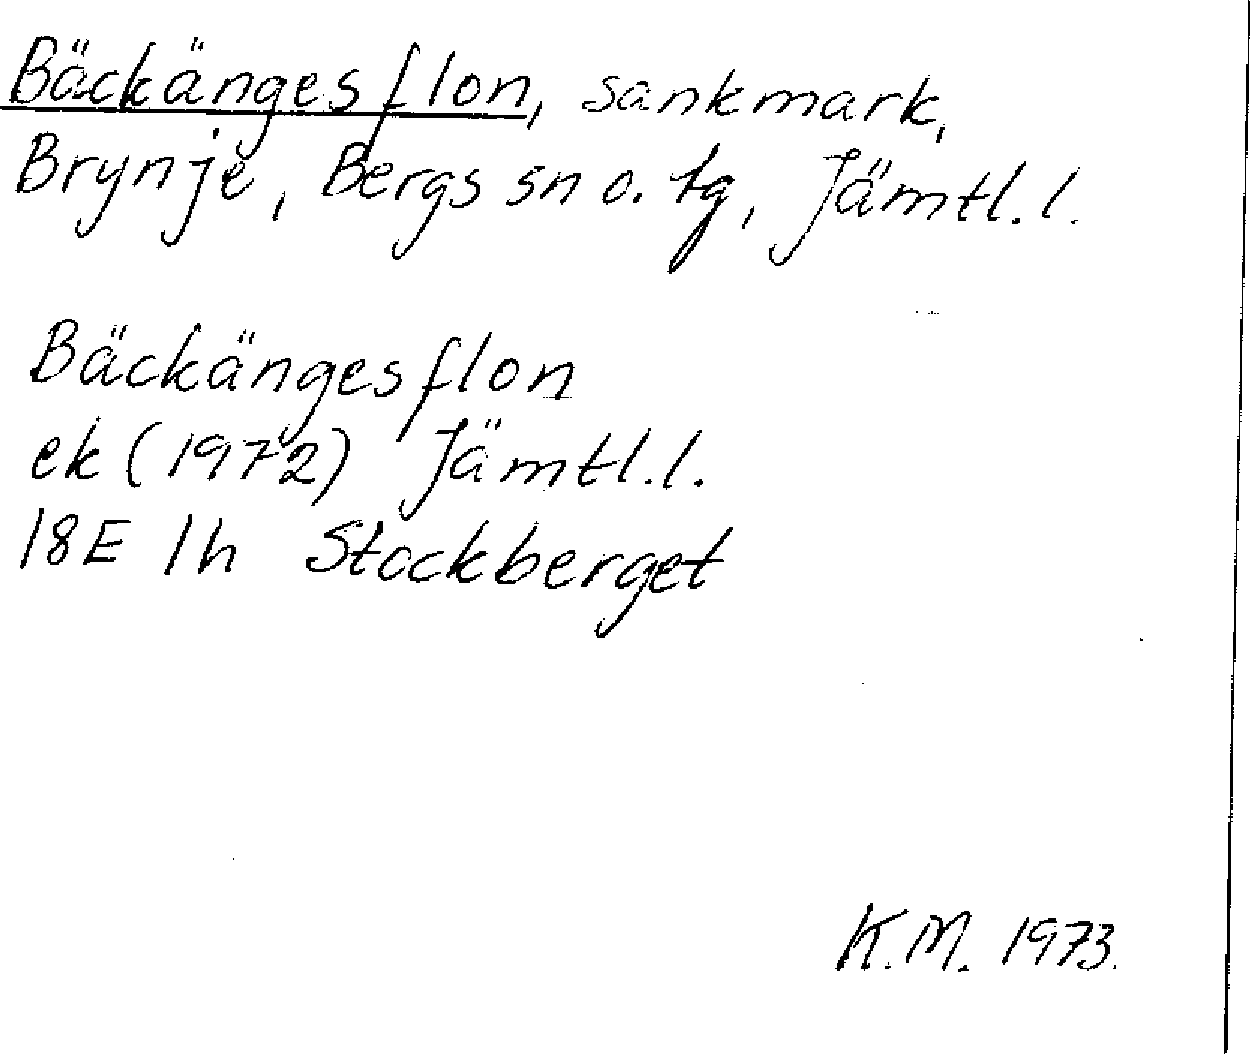 Bäckängesflon, sankmark,
Brynje, Bergs sn o. tg, Jämtl. l.
Bäckängesflon
ek (1972) Jämtl. l.
18E 1h Stockberget
K.M. 1973.